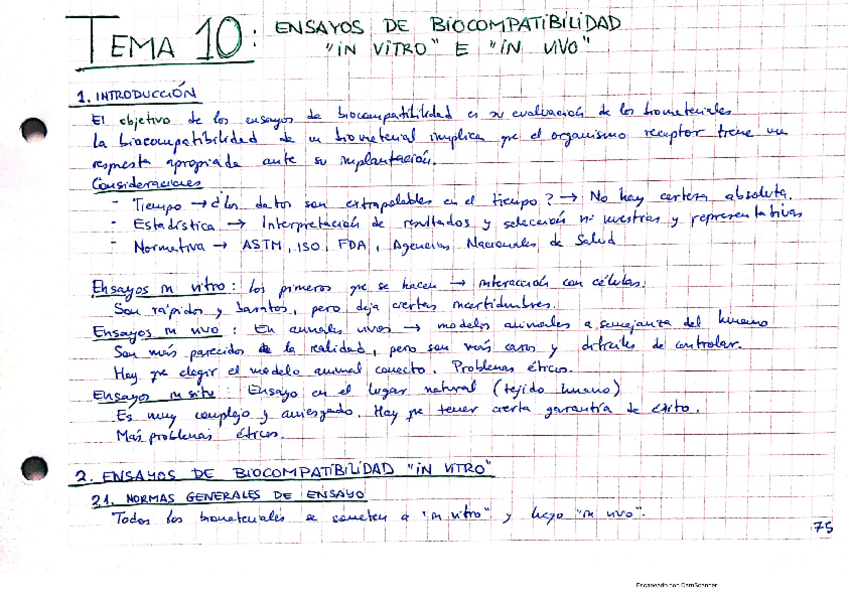 TEMA 10: ENSAYOS DE BIOCOMPATIBILIDAD
"IN VITRO" E "IN VIVO"
1. INTRODUCCIÓN
El objetivo de los ensayos de biocompatibilidad es su evaluación de los biomateriales
la biocompatibilidad de un biomaterial implica que el organismo receptor tiene una
respuesta apropiada ante su implantación.
Consideraciones
- Tiempo → ¿los datos son extrapolables en el tiempo? → No hay certeza absoluta.
- Estadística → Interpretación de resultados y selección nº muestras y representativas
- Normativa → ASTM, ISO, FDA, Agencias Nacionales de Salud
Ensayos in vitro: los primeros que se hacen → interacción con células.
Son rápidos y baratos, pero deja ciertas incertidumbres.
Ensayos in vivo: En animales vivos → modelos animales a semejanza del humano
Son más parecidos de la realidad, pero son más caros y difíciles de controlar.
Hay que elegir el modelo animal correcto. Problemas éticos.
Ensayos in situ Ensayo en el lugar natural (tejido humano)
Es muy complejo y arriesgado. Hay que tener cierta garantía de éxito.
Más problemas éticos.
2. ENSAYOS DE BIOCOMPATIBILIDAD "IN VITRO"
2.1. NORMAS GENERALES DE ENSAYO
Todos los biomateriales se someten a "in vitro" y luego "in vivo".
75
Escaneado con CamScanner